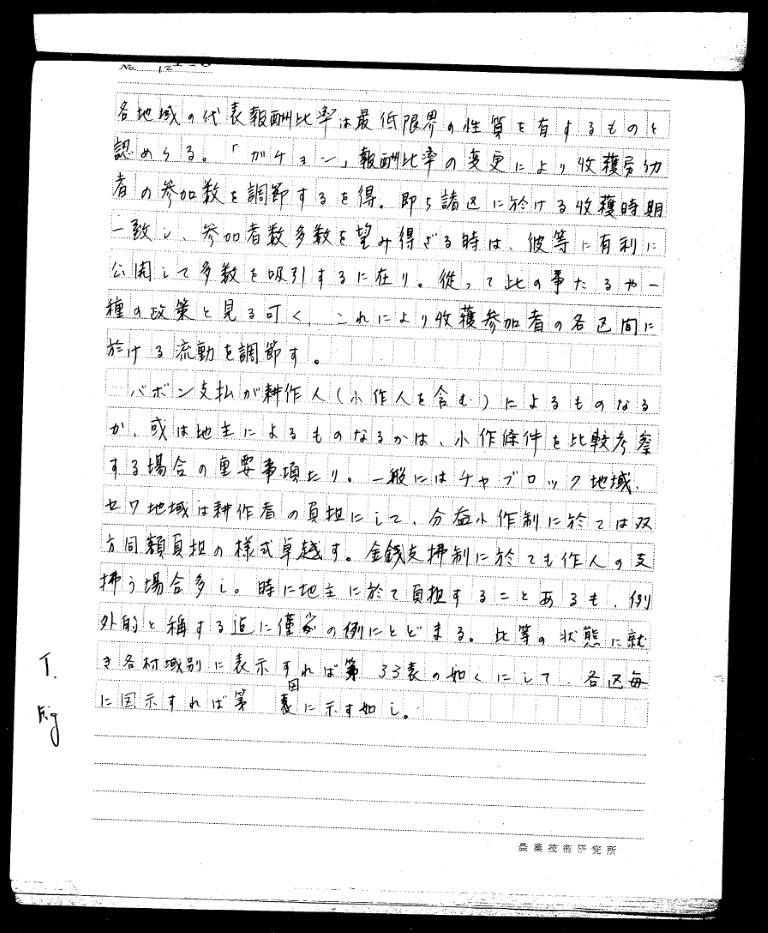 No. 12
各地域の代表報酬比率は最低限界の性質を有するものと
認めらる。「ガチョン」報酬比率の変更により收穫労仂
者の参加数を調節するを得。即ち諸区に於ける收穫時期
一致し、参加者数多数を望み得ざる時は、彼等に有利に
公開して多数を吸引するに在り。従って此の事たるや一
種の政策と見る可く、これにより收穫参加者の各区間に
於ける流動を調節す。
バボン支払が耕作人(小作人を含む)によるものなる
か、或は地主によるものなるかは、小作條件を比較考察
する場合の重要事項たり。一般にはチャブロック地域、
セワ地域は耕作者の負担にして、分益小作制に於ては双
方同額負担の様式卓越す。金銭支拂制に於ても作人の支
拂う場合多し。時に地主に於て負担することあるも、例
外的と稱する迄に僅少の例にとどまる。此等の状態に就
き各村域別に表示すれば第33表の如くにして、各区毎
に図示すれば第 図に示す如し。
T.
Fig
農業技術研究所